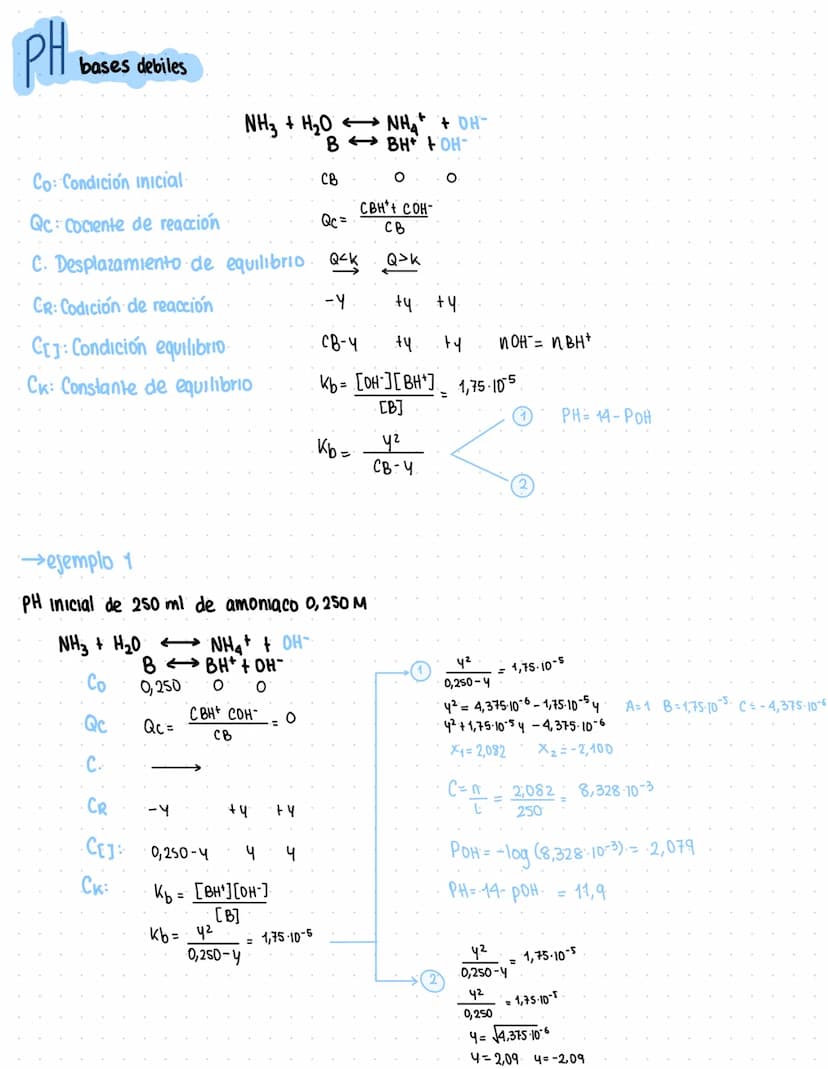 PH bases debiles
NH₃ + H₂O ⟷ NH₄⁺ + OH⁻
B ⟷ BH⁺ + OH⁻
C₀: Condición inicial CB 0 0
Qc: Cociente de reacción Qc = CBH⁺+ COH⁻ / CB
C. Desplazamiento de equilibrio Q<K → Q>K ←
CR: Codición de reacción -y +y +y
C[]: Condición equilibrio CB-y +y +y nOH⁻ = nBH⁺
CK: Constante de equilibrio Kb = [OH⁻][BH⁺] / [B] = 1,75·10⁻⁵
① PH = 14 - POH
Kb = y² / CB-y
②
→ejemplo 1
PH inicial de 250 ml de amoniaco 0,250 M
NH₃ + H₂O ⟷ NH₄⁺ + OH⁻
B ⟷ BH⁺ + OH⁻
C₀ 0,250 0 0
Qc Qc = CBH⁺ COH⁻ / CB = 0
C. →
CR -y +y +y
C[]: 0,250-y y y
CK: Kb = [BH⁺][OH⁻] / [B]
Kb = y² / 0,250-y = 1,75·10⁻⁵
① y² / 0,250-y = 1,75·10⁻⁵
y² = 4,375·10⁻⁶ - 1,75·10⁻⁵y A=1 B=1,75·10⁻⁵ C=-4,375·10⁻⁶
y² + 1,75·10⁻⁵y - 4,375·10⁻⁶
X₁ = 2,082 X₂ = -2,100
C = n / L = 2,082 / 250 = 8,328·10⁻³
POH = -log (8,328·10⁻³) = 2,079
PH = 14 - pOH. = 11,9
② y² / 0,250-y = 1,75·10⁻⁵
y² / 0,250 = 1,75·10⁻⁵
y = √4,375·10⁻⁶
y = 2,09 y = -2,09